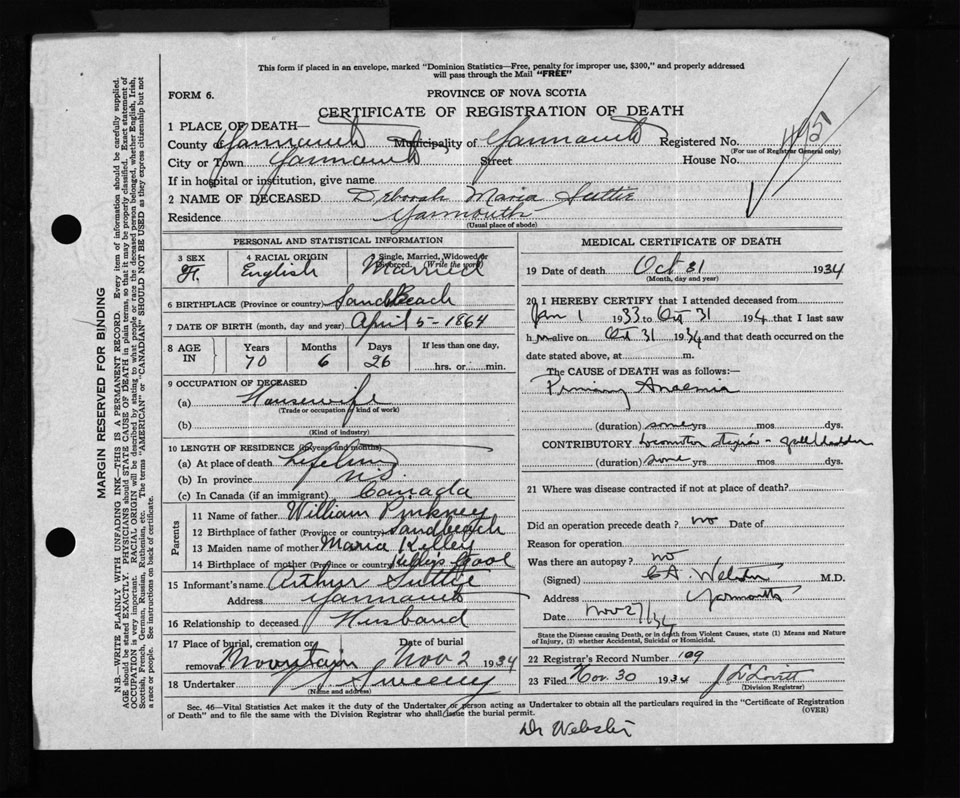 This form if placed in an envelope, marked "Dominion Statistics—Free, penalty for improper use, $300," and properly addressed
will pass through the Mail "FREE"
FORM 6.
PROVINCE OF NOVA SCOTIA
CERTIFICATE OF REGISTRATION OF DEATH
1 PLACE OF DEATH—
County of Yarmouth Municipality of Yarmouth Registered No.
(For use of Registrar General only)
City or Town Yarmouth Street House No.
If in hospital or institution, give name
2 NAME OF DECEASED Deborah Maria Suttie
Residence Yarmouth
(Usual place of abode)
PERSONAL AND STATISTICAL INFORMATION
3 SEX 4 RACIAL ORIGIN Single, Married, Widowed or
Divorced. (Write the word)
F. English Married
6 BIRTHPLACE (Province or country) Sand Beach
7 DATE OF BIRTH (month, day and year) April 5 - 1864
8 AGE IN Years Months Days If less than one day,
70 6 26 hrs. or min.
9 OCCUPATION OF DECEASED
(a) Housewife
(Trade or occupation or kind of work)
(b)
(Kind of industry)
10 LENGTH OF RESIDENCE (in years and months)
(a) At place of death Lifelong
(b) In province N.S.
(c) In Canada (if an immigrant) Canada
Parents
11 Name of father William Pinkney
12 Birthplace of father (Province or country) Sandbeach
13 Maiden name of mother Maria Kelley
14 Birthplace of mother (Province or country) Kelley's Cove
15 Informant's name Arthur Suttie
Address Yarmouth
16 Relationship to deceased Husband
17 Place of burial, cremation or removal Date of burial
Mountain Nov 2 1934
18 Undertaker Sweeny
(Name and address)
MEDICAL CERTIFICATE OF DEATH
19 Date of death Oct 31 1934
(Month, day and year)
20 I HEREBY CERTIFY that I attended deceased from
Jan 1 1933 to Oct 31 194 that I last saw
h alive on Oct 31 1934 and that death occurred on the
date stated above, at m.
The CAUSE of DEATH was as follows:—
Primary Anaemia
(duration) some yrs mos dys.
CONTRIBUTORY Locomotor ataxia - gallbladder
(duration) some yrs mos dys.
21 Where was disease contracted if not at place of death?
Did an operation precede death? no Date of
Reason for operation
Was there an autopsy? no
(Signed) C.A. Webster M.D.
Address Yarmouth
Date Nov 27/34
State the Disease causing Death, or in death from Violent Causes, state (1) Means and Nature
of Injury, (2) whether Accidental, Suicidal or Homicidal.
22 Registrar's Record Number 109
23 Filed Nov. 30 1934
(Division Registrar)
Sec. 46—Vital Statistics Act makes it the duty of the Undertaker or person acting as Undertaker to obtain all the particulars required in the "Certificate of Registration
of Death" and to file the same with the Division Registrar who shall issue the burial permit.
(OVER)
Dr Webster
MARGIN RESERVED FOR BINDING
N.B.—WRITE PLAINLY WITH UNFADING INK—THIS IS A PERMANENT RECORD. Every item of information should be carefully supplied.
AGE should be stated EXACTLY. PHYSICIANS should STATE CAUSE OF DEATH in plain terms, so that it may be properly classified. Exact statement of
OCCUPATION is very important. RACIAL ORIGIN will be described by stating to what people or race the deceased person belonged, whether English, Irish,
Scottish, French, German, Russian, Ruthenian, etc. The terms "AMERICAN" or "CANADIAN" SHOULD NOT BE USED as they express citizenship but not
a race or people. See instructions on back of certificate.